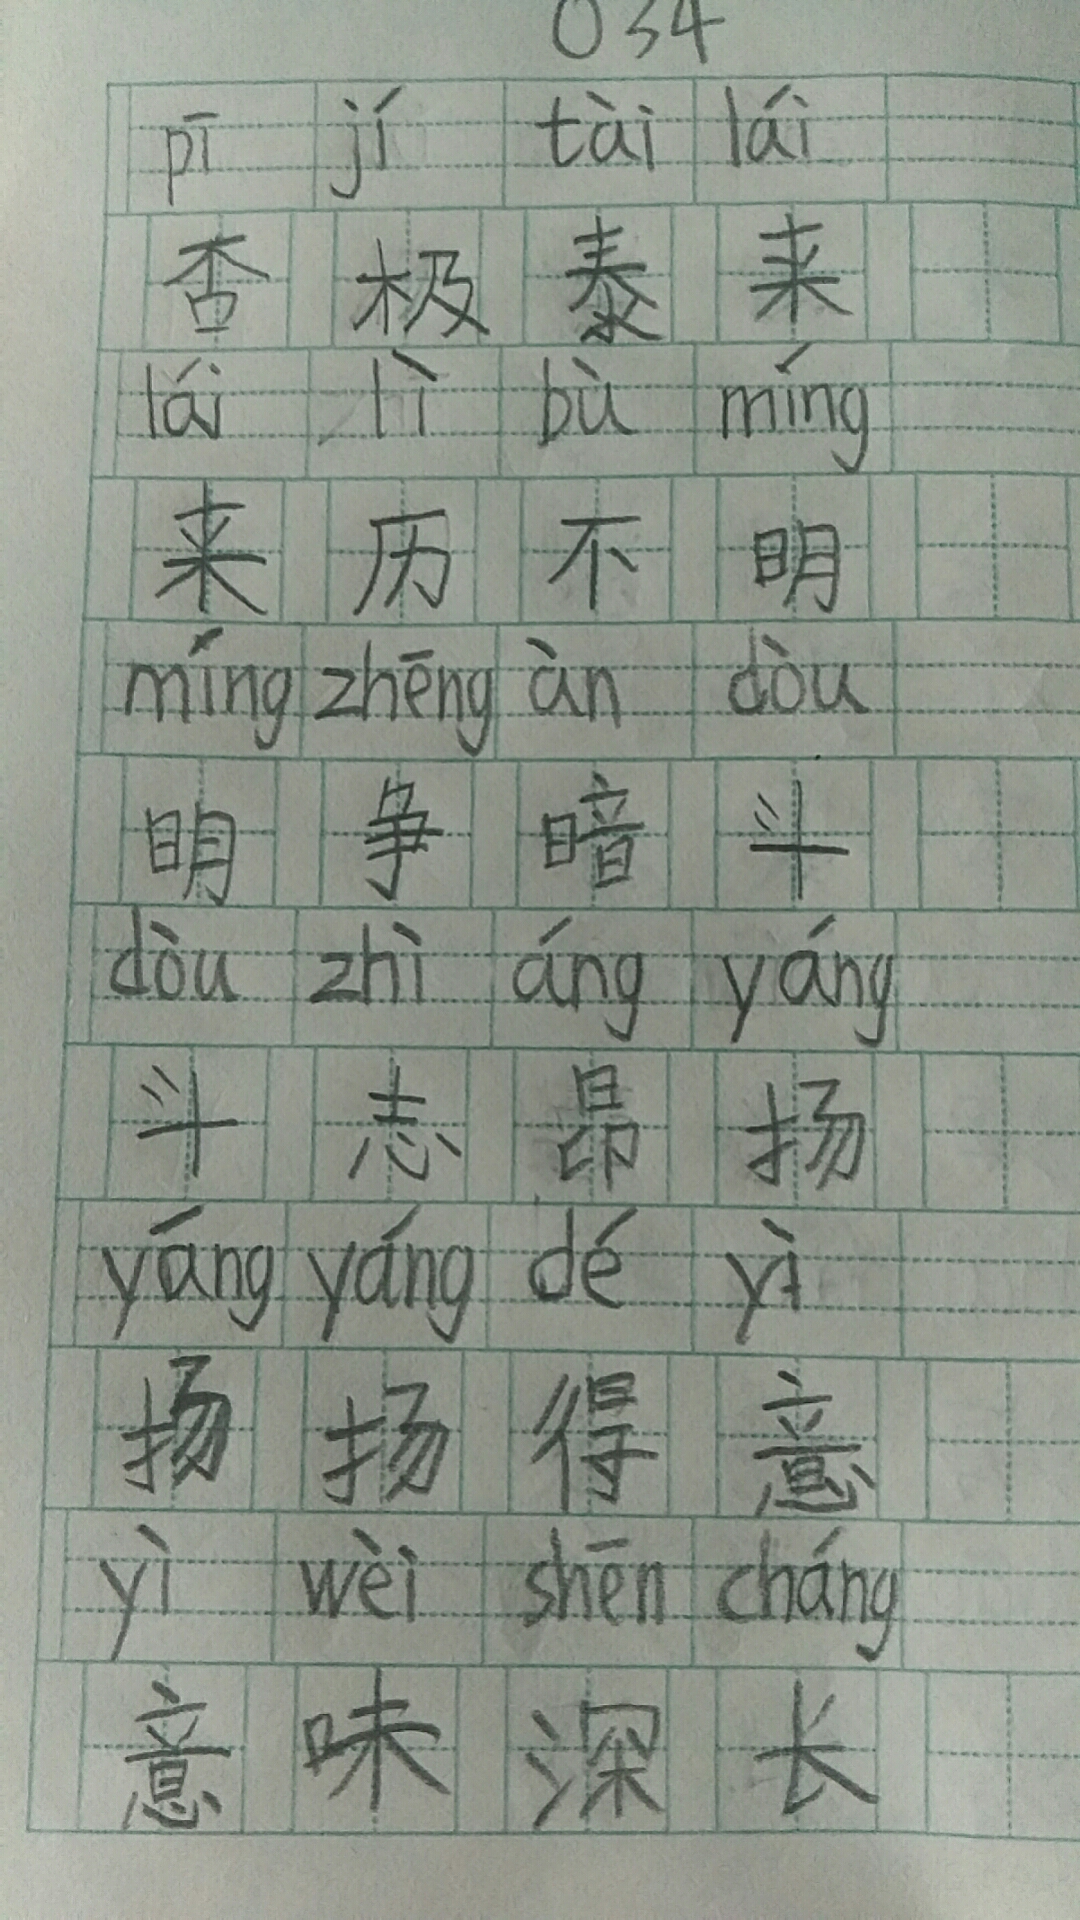 034
pī jí tài lái
否极泰来
lái lì bù míng
来历不明
míng zhēng àn dòu
明争暗斗
dòu zhì áng yáng
斗志昂扬
yáng yáng dé yì
扬扬得意
yì wèi shēn cháng
意味深长